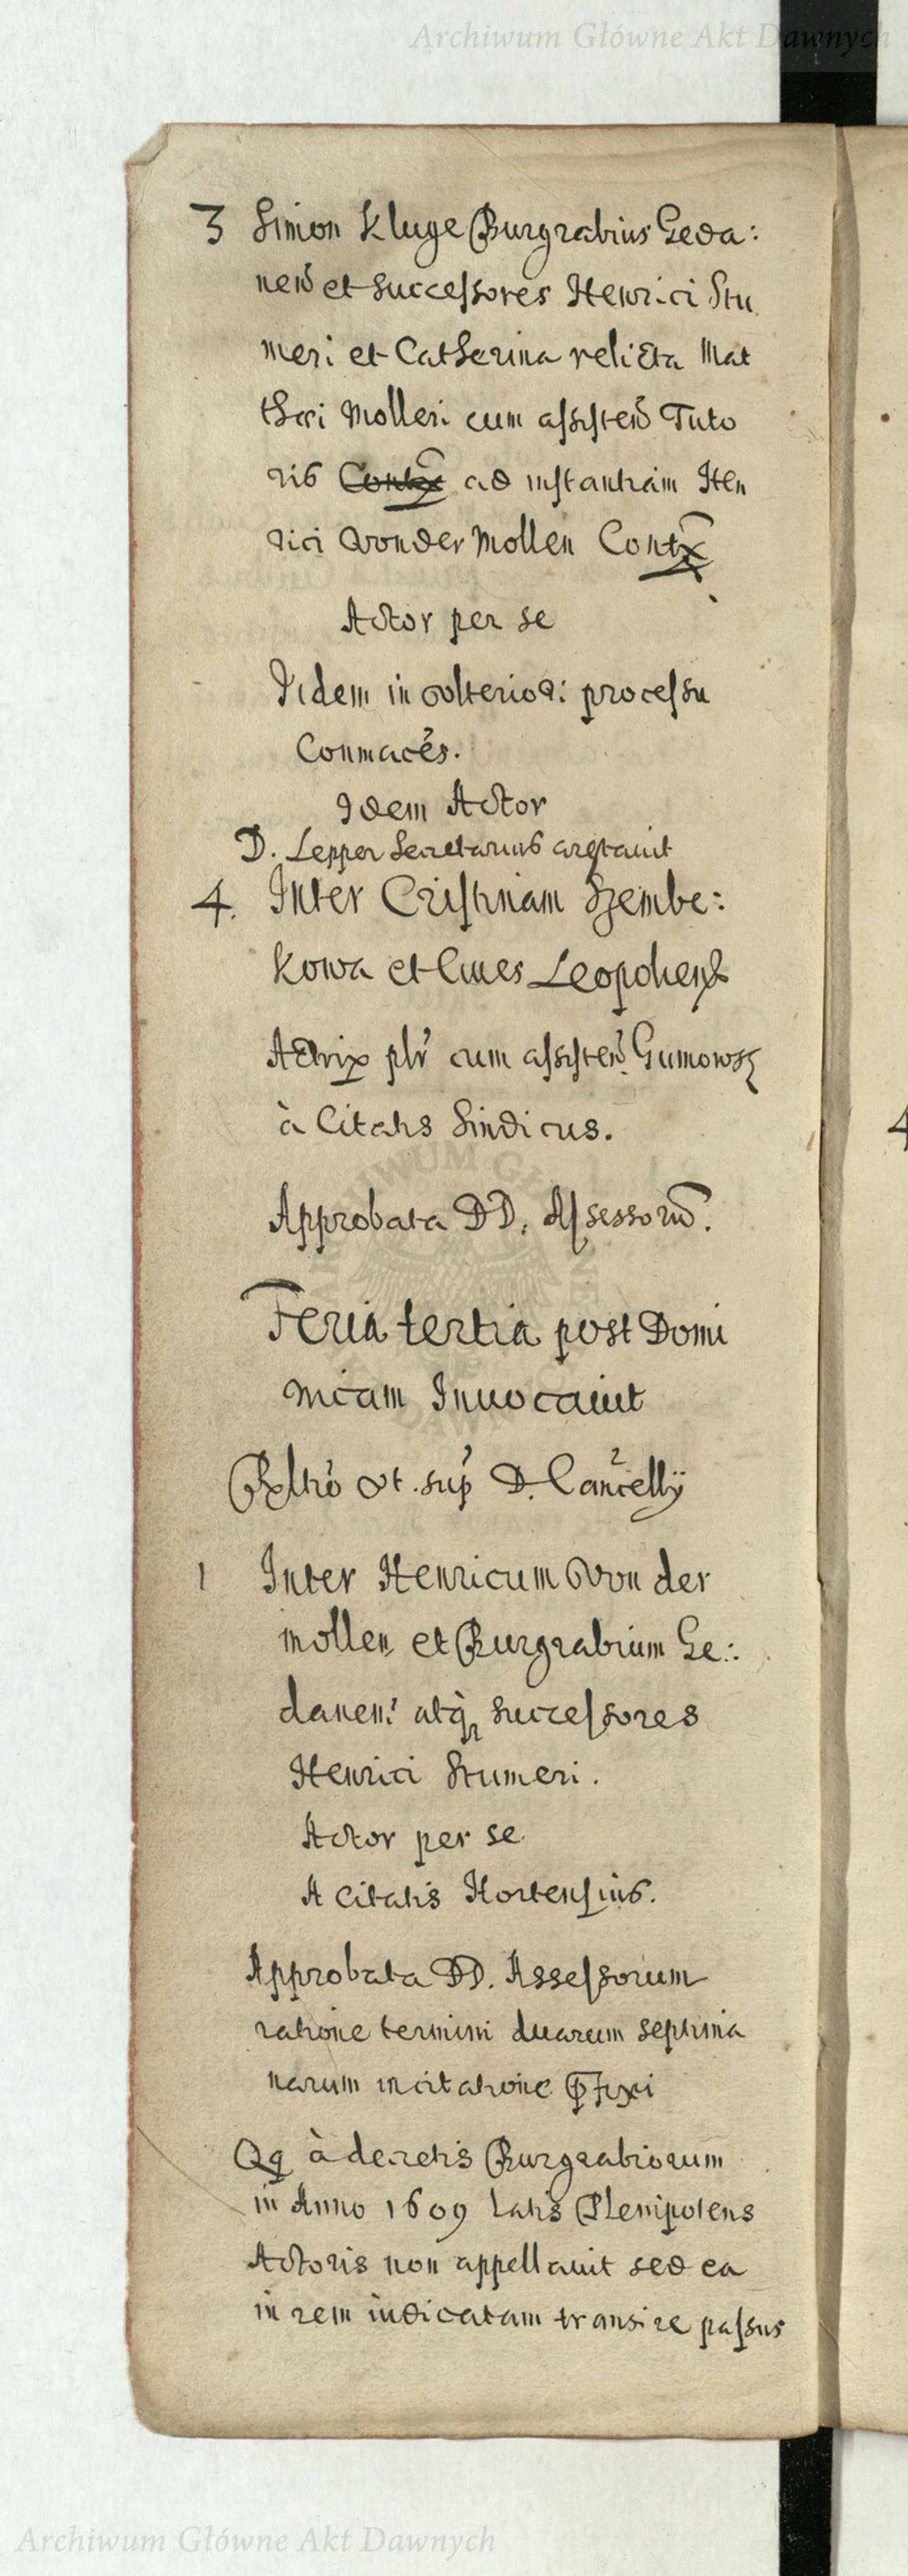 Archiwum Główne Akt Dawnych
3 Simon Kluge Burgrabius Geda:
nen̄ et Successores Henrici Stu
meri et Catherina relicta Mat
thæi Molleri cum assisten̄ Tuto
ris Contx̄ ad instantiam Hen
rici Vonder Mollen Contx̄
Actor per se
Iidem in vlterio̅ri: processu
Conmacēs.
Idem Actor
D. Lepper Secretarius arestauit
4. Inter Cristinam Szembe:
kowa et Ciues Leopolien̄
Actrix pn̄r cum assisten̄ Gumowsk
à Citatis Sindicus.
Approbata DD. Assessorū.
Feria tertia post Domi
nicam Inuocauit
Relatio vt. sup̄ D. Cancellÿ
1 Inter Henricum Von der
mollen et Burgrabium Ge:
danen: atq̄ successores
Henrici Stumeri.
Actor per se
A Citatis Hortensius.
Approbata DD. Assessorum
ratione termini duarum septima
narum in citatione p̄fixi
Qꝗ à decretis Burgrabiorum
in Anno 1609 latis Plenipotens
Actoris non appellauit sed ea
in rem iudicatam transire passus
4
Archiwum Główne Akt Dawnych